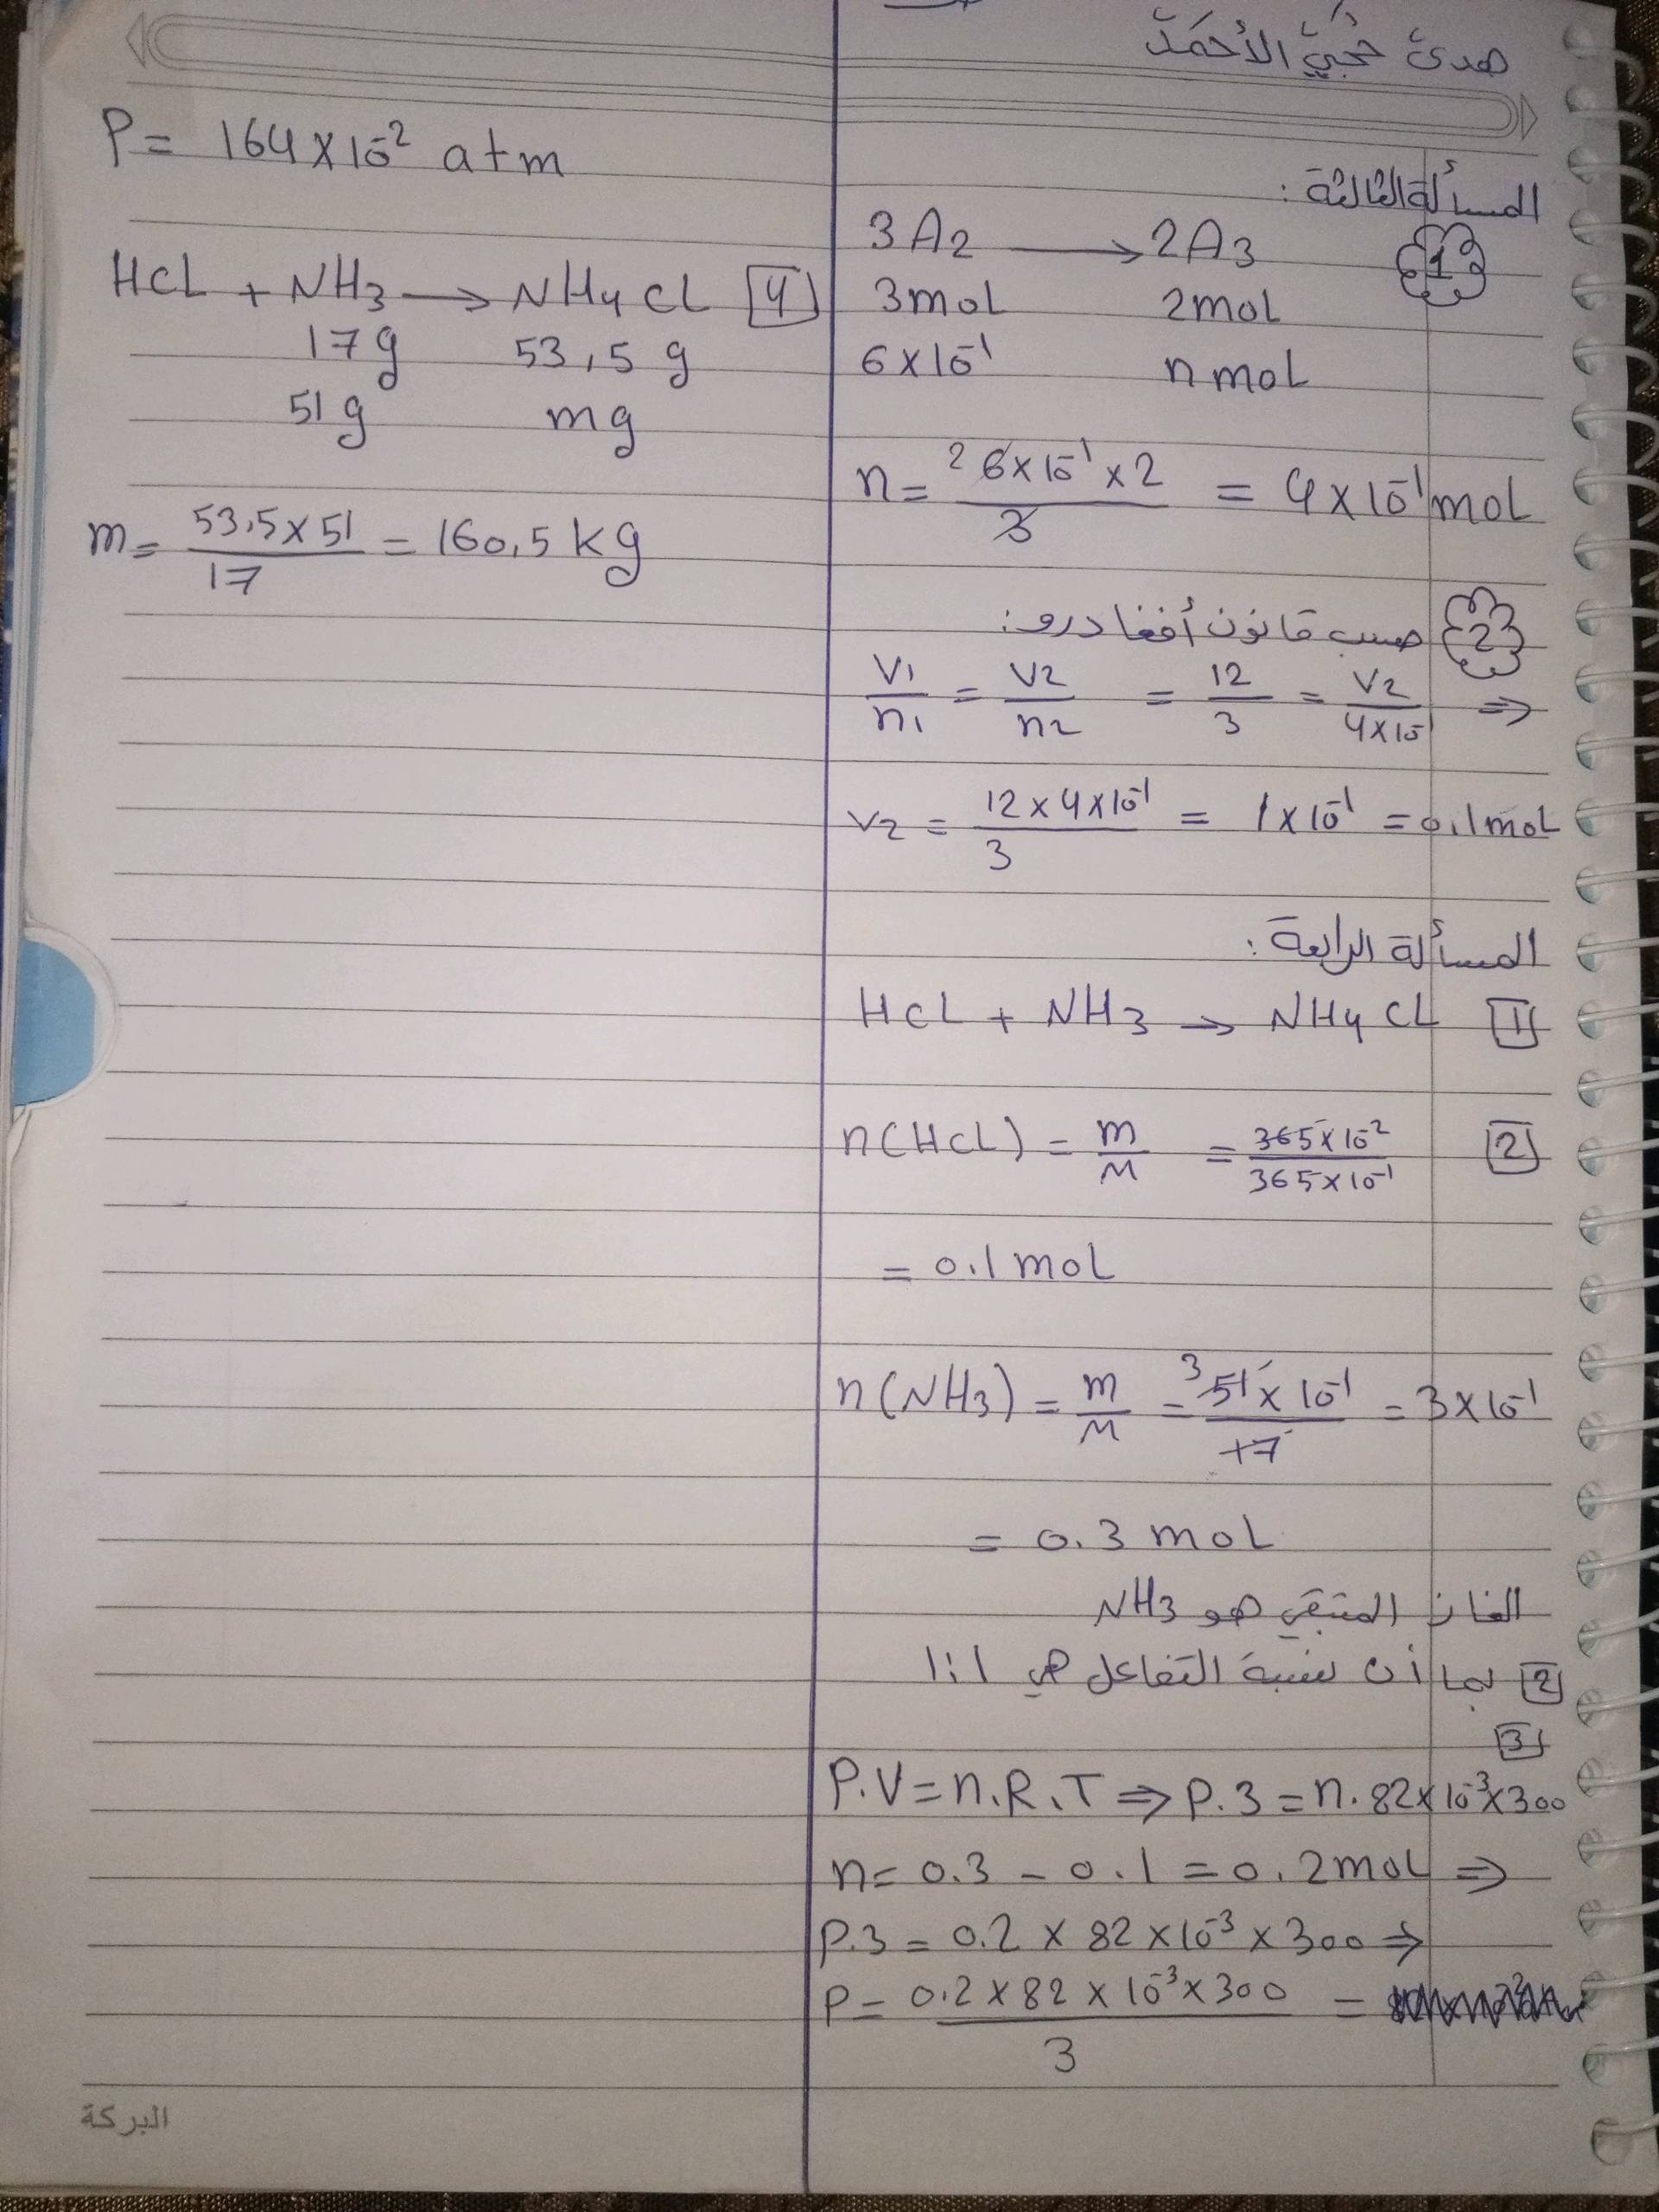 هدى حُجّيّ الأحمَد
المسألة الثالثة :
1
3A2 → 2A3
3mol 2mol
6×10⁻¹ n mol
n = 2 6×10⁻¹ × 2 / 3 = 4×10⁻¹ mol
2 حسب قانون أففادرو :
V1/n1 = V2/n2 = 12/3 = V2/4×10⁻¹ ⇒
V2 = 12×4×10⁻¹ / 3 = 1×10⁻¹ = 0.1 mol
المسألة الرابعة :
HCl + NH3 → NH4Cl 1
n(HCl) = m/M = 365×10⁻² / 365×10⁻¹ 2
= 0.1 mol
n(NH3) = m/M = 3 51×10⁻¹ / 17 = 3×10⁻¹
= 0.3 mol
الغاز المتبقي هو NH3
2 بما أن نسبة التفاعل هي 1:1
3
P.V = n.R.T ⇒ P.3 = n.82×10⁻³×300
n = 0.3 - 0.1 = 0.2 mol ⇒
P.3 = 0.2 × 82 × 10⁻³ × 300 ⇒
P = 0.2 × 82 × 10⁻³ × 300 / 3 =
P = 164×10⁻² atm
HCl + NH3 → NH4Cl 4
17g 53,5 g
51g mg
m = 53,5×51 / 17 = 160,5 kg
البركة